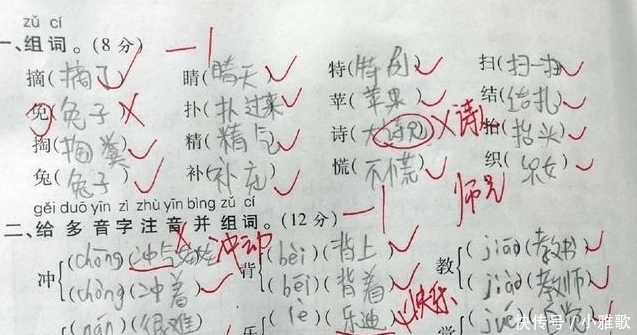 zǔ cí
一、组词。(8分) 一1
摘(摘了) 睛(晴天) 特(特别) 扫(扫一扫)
免(兔子) 扑(扑过来) 苹(苹果) 结(结扎)
掏(掏粪) 精(精气) 诗(大诗兄) 诗人 抬(抬头)
兔(兔子) 补(补充) 慌(不慌) 织(织女)
师兄
gěi duō yīn zì zhù yīn bìng zǔ cí
二、给多音字注音并组词。(12分) 一1
冲 (chōng)(冲气) 冲动 背 (bēi)(背上) 教 (jiāo)(教书)
(chòng)(冲着) (bēi)(背着) (jiào)(教师)
(nán)(很难) 乐 (lè)(乐迪) 快乐 觉 (jué)
快传号/小雅歌